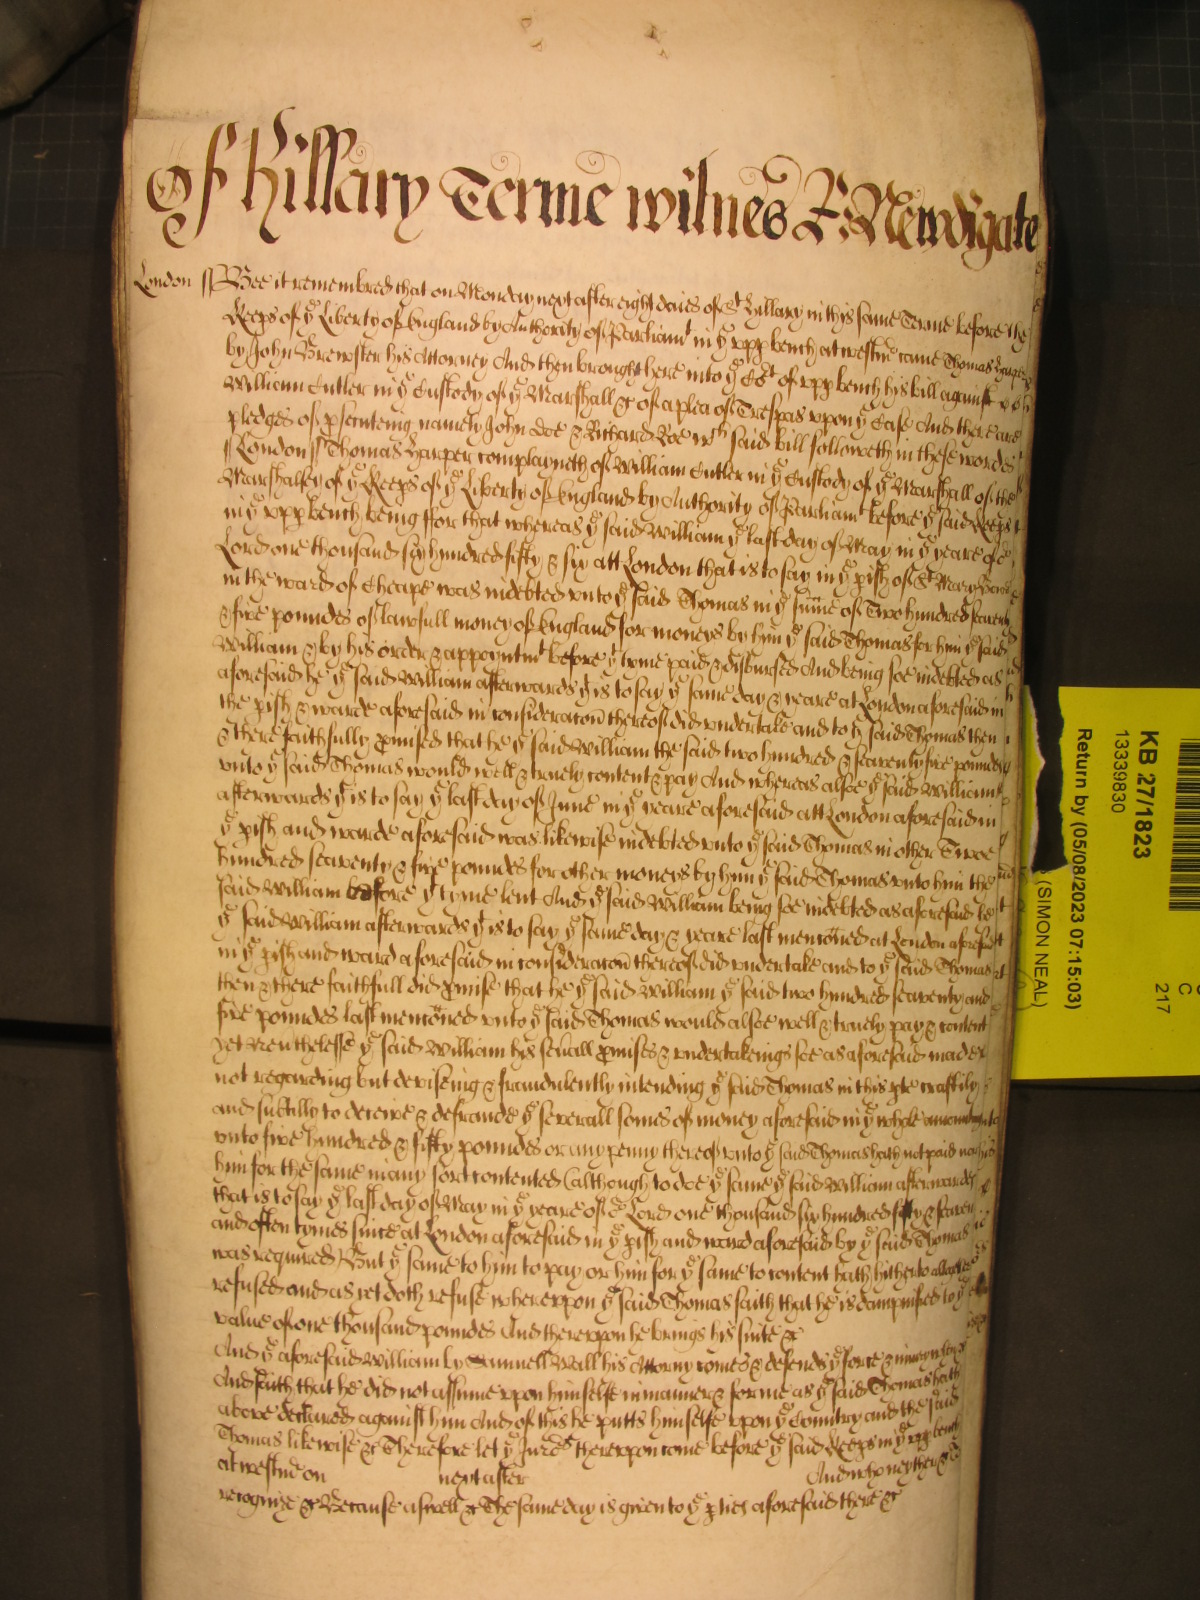 Of Hillary Terme witnes R: Newdigate
London ss Bee it remembred that on Monday next after eight daies of St Hillary in this same Terme before the
Keeps of ye Liberty of England by Authority of Parliamt in ye upp bench at westmr came Thomas Harper
by John Brewster his Attorney And then brought here into ye Cot of upp bench his bill against
William Cutler in ye Custody of ye Marshall &c of a plea of Trespas upon ye Case And there are
pledges of psecuteing namely John Doe & Richard Roe wch said bill followeth in these wordes
ss London ss Thomas Harper complayneth of William Cutler in ye Custody of ye Marshall of the
Marshalsey of ye Keeps of ye Liberty of England by Authority of Parliamt before ye said Keeps
in ye upp bench being ffor that whereas ye said William ye last day of May in ye yeare of or
Lord one thousand six hundred fifty & six att London that is to say in ye pish of St Mary Bowe
in the ward of Cheape was indebted unto ye said Thomas in ye sume of Two hundred seaventy
& five poundes of lawfull money of England for moneys by him ye said Thomas for him ye said
William & by his order & appoyntmt before yt tyme paid & disbursed And being soe indebted as
aforesaid he ye said William afterwards yt is to say ye same day & yeare at London aforesaid in
the pish & warde aforesaid in consideracon thereof did undertake and to ye said Thomas then
& there faithfully pmised that he ye said William the said two hundred & seaventy five poundes
unto ye said Thomas would well & truely content & pay And whereas alsoe ye said William
afterwards yt is to say ye last day of June in ye yeare aforesaid att London aforesaid in
ye pish and warde aforesaid was likewise indebted unto ye said Thomas in other Twoe
hundred seaventy & five poundes for other moneys by him ye said Thomas unto him the
said William before yt tyme lent And ye said William being soe indebted as aforesaid he
ye said William afterwards yt is to say ye same day & yeare last menconed at London aforesaid
in ye pish and ward aforesaid in consideracon thereof did undertake and to ye said Thomas
then & there faithfull did pmise that he ye said William ye said two hundred seaventy and
five poundes last menconed unto ye said Thomas would alsoe well & truely pay & content
Yet Neverthelesse ye said William his sevall pmises & undertakeings soe as aforesaid made
not regarding but deviseing & fraudulently intending ye said Thomas in this pte craftily
and subtilly to deceive & defraude ye severall somes of money aforesaid in ye whole amounting
unto five hundred & fifty poundes or any penny thereof unto ye said Thomas hath not paid nor
him for the same in any sort contented (although to doe ye same ye said William afterwardes
that is to say ye last day of May in ye yeare of or Lord one thousand six hundred fifty & seaven
and often tymes since at London aforesaid in ye pish and ward aforesaid by ye said Thomas
was required But ye same to him to pay or him for ye same to content hath hitherto altogether
refused and as yet doth refuse whereupon ye said Thomas saith that he is dampnified to ye
value of one thousand poundes And thereupon he brings his suite &c
And ye aforesaid William by Samuell Wall his Attorny comes & defends ye force & iniury when &c
And saith that he did not assume upon himselfe in manner & forme as ye said Thomas hath
above declared against him And of this he putts himselfe upon ye Country and the said
Thomas likewise &c Therefore let ye Jury thereupon come before ye said Keeps in ye upp bench
at westmr on next after And who neyther &c
recognize &c Because aswell &c The same day is given to ye pties aforesaid there &c
KB 27/1823
13339830
Return by (05/08/2023 07:15:03)
(SIMON NEAL)
C
217